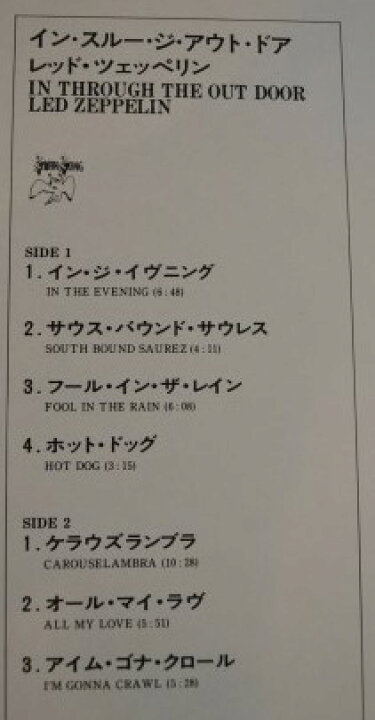 イン・スルー・ジ・アウト・ドア
レッド・ツェッペリン
IN THROUGH THE OUT DOOR
LED ZEPPELIN
SIDE 1
1. イン・ジ・イヴニング
IN THE EVENING (6:48)
2. サウス・バウンド・サウレス
SOUTH BOUND SAUREZ (4:11)
3. フール・イン・ザ・レイン
FOOL IN THE RAIN (6:08)
4. ホット・ドッグ
HOT DOG (3:15)
SIDE 2
1. ケラウズランブラ
CAROUSELAMBRA (10:28)
2. オール・マイ・ラヴ
ALL MY LOVE (5:51)
3. アイム・ゴナ・クロール
I'M GONNA CRAWL (5:28)